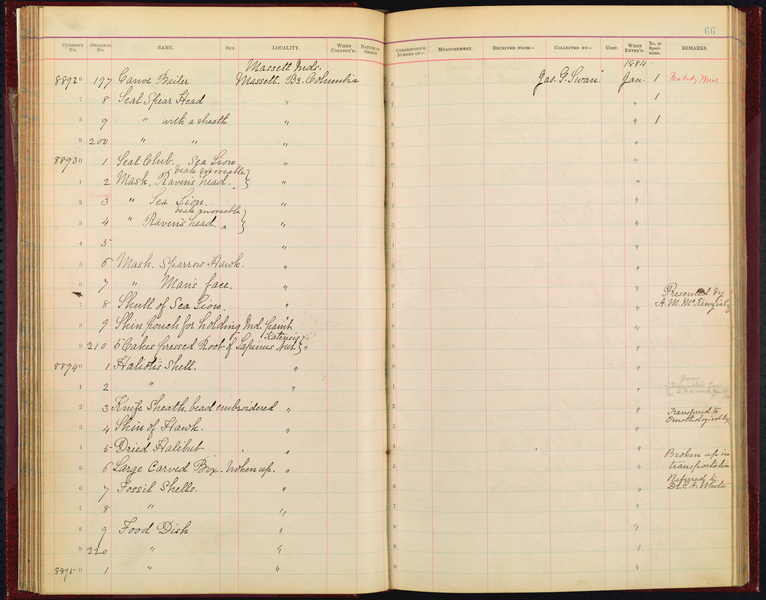 66
Current No. Original No. Name. Sex. Locality. When Collect'd. Nature of Object. Correspond'g Number of— Measurement. Received from— Collected by— Cost. When Enter'd. No. of Specimens. Remarks.
Massett Inds. 1884
88920 197 Canoe Bailer Massett. Br. Columbia Jas. G. Swan. Jan. 1
7 8 Seal Spear Head " " 1
8 9 " " with a sheath. " " 1
9 200 " " " "
88930 1 Seal Club. Sea Lion. " "
beak moveable
1 2 Mask. Raven's head. } " "
2 3 " Sea Lion. " "
beak moveable
3 4 " Raven's head. } " "
4 5 " "
5 6 Mask. Sparrow Hawk. " "
6 7 " Man's face. " " Presented by
7 8 Skull of Sea Lion. " " A. M. McKenzie
8 9 Skin pouch for holding Ind. paint " "
9 210 5 Cakes pressed Root of Lupinus } " "
88940 1 Haliotis Shell. " "
1 2 " " "
2 3 Knife Sheath. bead embroidered " " Transferred to
3 4 Skin of Hawk. " " Ornithological
4 5 Dried Halibut " "
5 6 Large Carved Box. broken up. " " Broken up in transportation
6 7 Fossil Shells. " " Referred to
7 8 " " "
8 9 Food Dish " "
9 220 " " "
8895 1 " " "